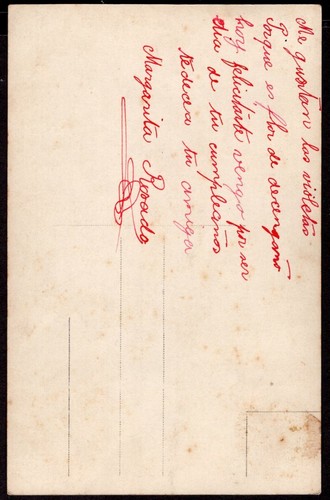 Me gustan las violetas
Porque es flor de decengaño
hoy felicitarte vengo por ser
dia de tu cumpleaños
te decea tu amiga
Margarita Rosado